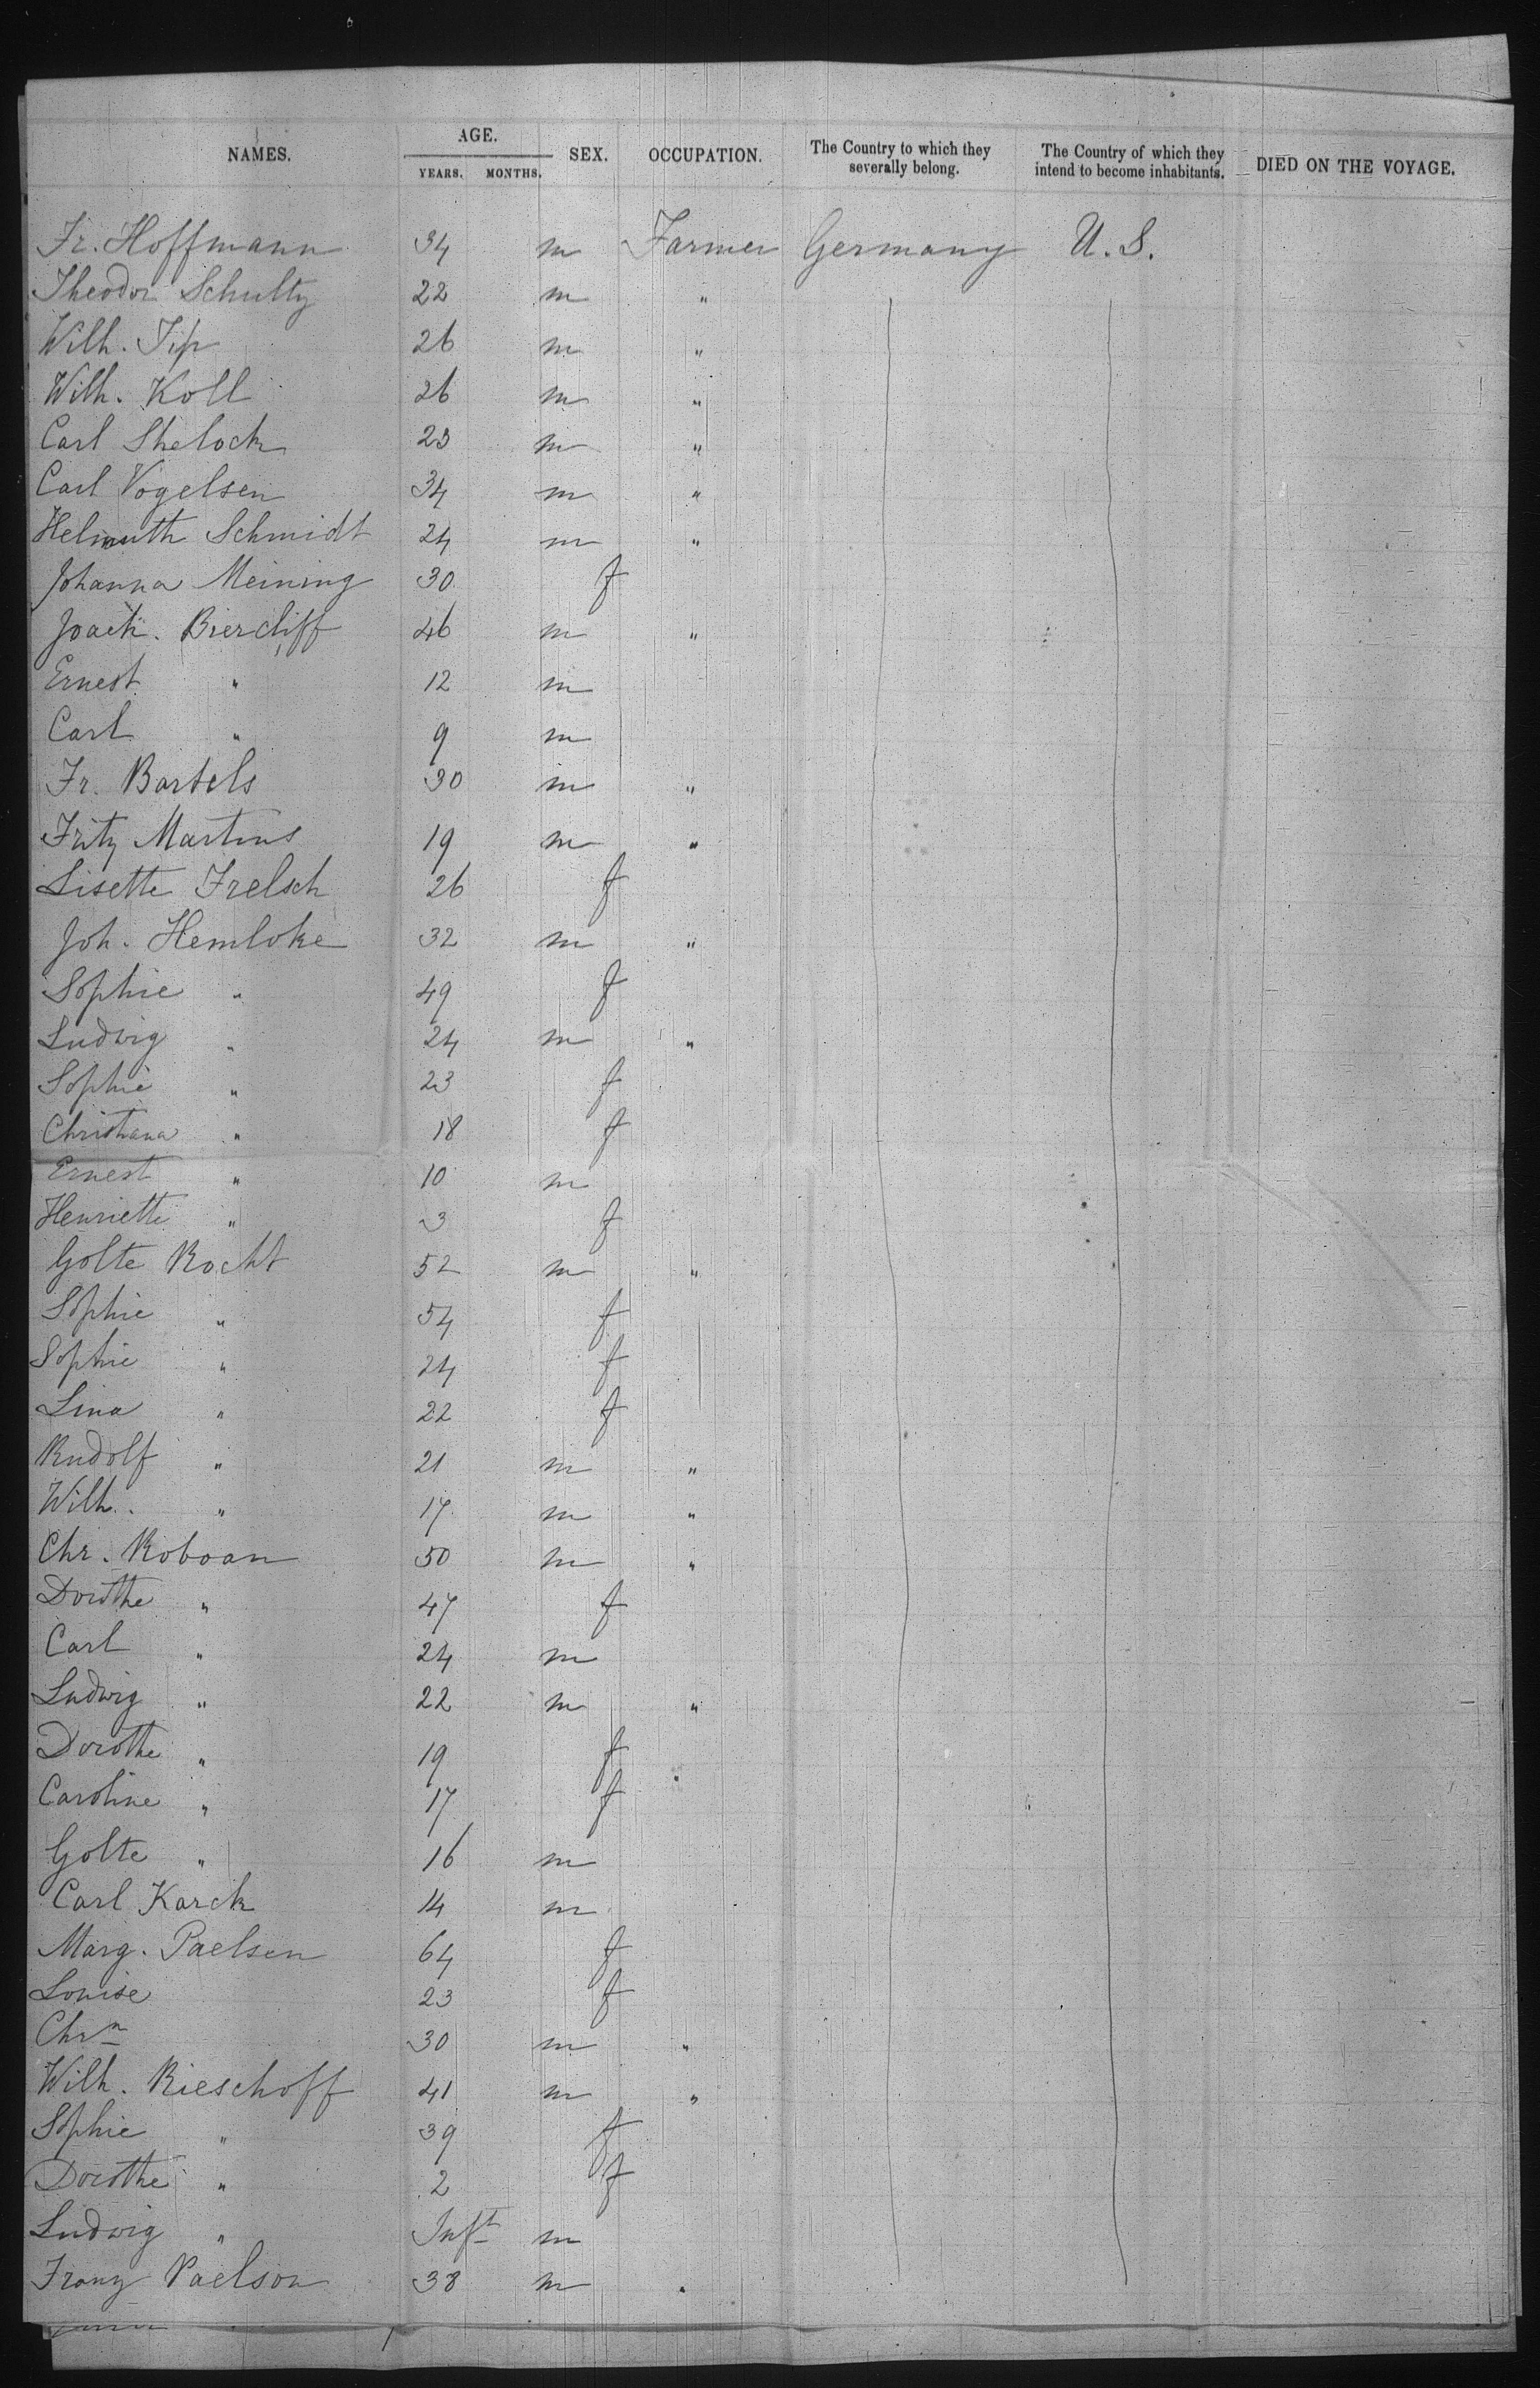 NAMES. AGE. YEARS. MONTHS. SEX. OCCUPATION. The Country to which they severally belong. The Country of which they intend to become inhabitants. DIED ON THE VOYAGE.
Fr. Hoffmann 34 m Farmer Germany U.S.
Theodor Schultz 22 m "
Wilh. Tip 26 m "
Wilh. Koll 26 m "
Carl Shelock 23 m "
Carl Vogelsen 34 m "
Helmuth Schmidt 24 m "
Johanna Meining 30 f
Joach. Biercliff 46 m "
Ernest " 12 m
Carl " 9 m
Fr. Bartels 30 m "
Fritz Martins 19 m "
Lisette Frelsch 26 f
Joh. Hemloke 32 m "
Sophie " 49 f
Ludwig " 24 m "
Sophie " 23 f
Christiana " 18 f
Ernest " 10 m
Henriette " 3 f
Golte Rocht 52 m "
Sophie " 54 f
Sophie " 24 f
Lina " 22 f
Rudolf " 21 m "
Wilh. " 17 m "
Chr. Roboan 50 m "
Dorothe " 47 f
Carl " 24 m
Ludwig " 22 m "
Dorothe " 19 f "
Caroline " 17 f
Golte " 16 m
Carl Karck 14 m
Marg. Paelsen 64 f
Louise 23 f
Chrn 30 m "
Wilh. Rieschoff 41 m "
Sophie " 39 f
Dorothe " 2 f
Ludwig " Inft m
Franz Paelson 38 m "